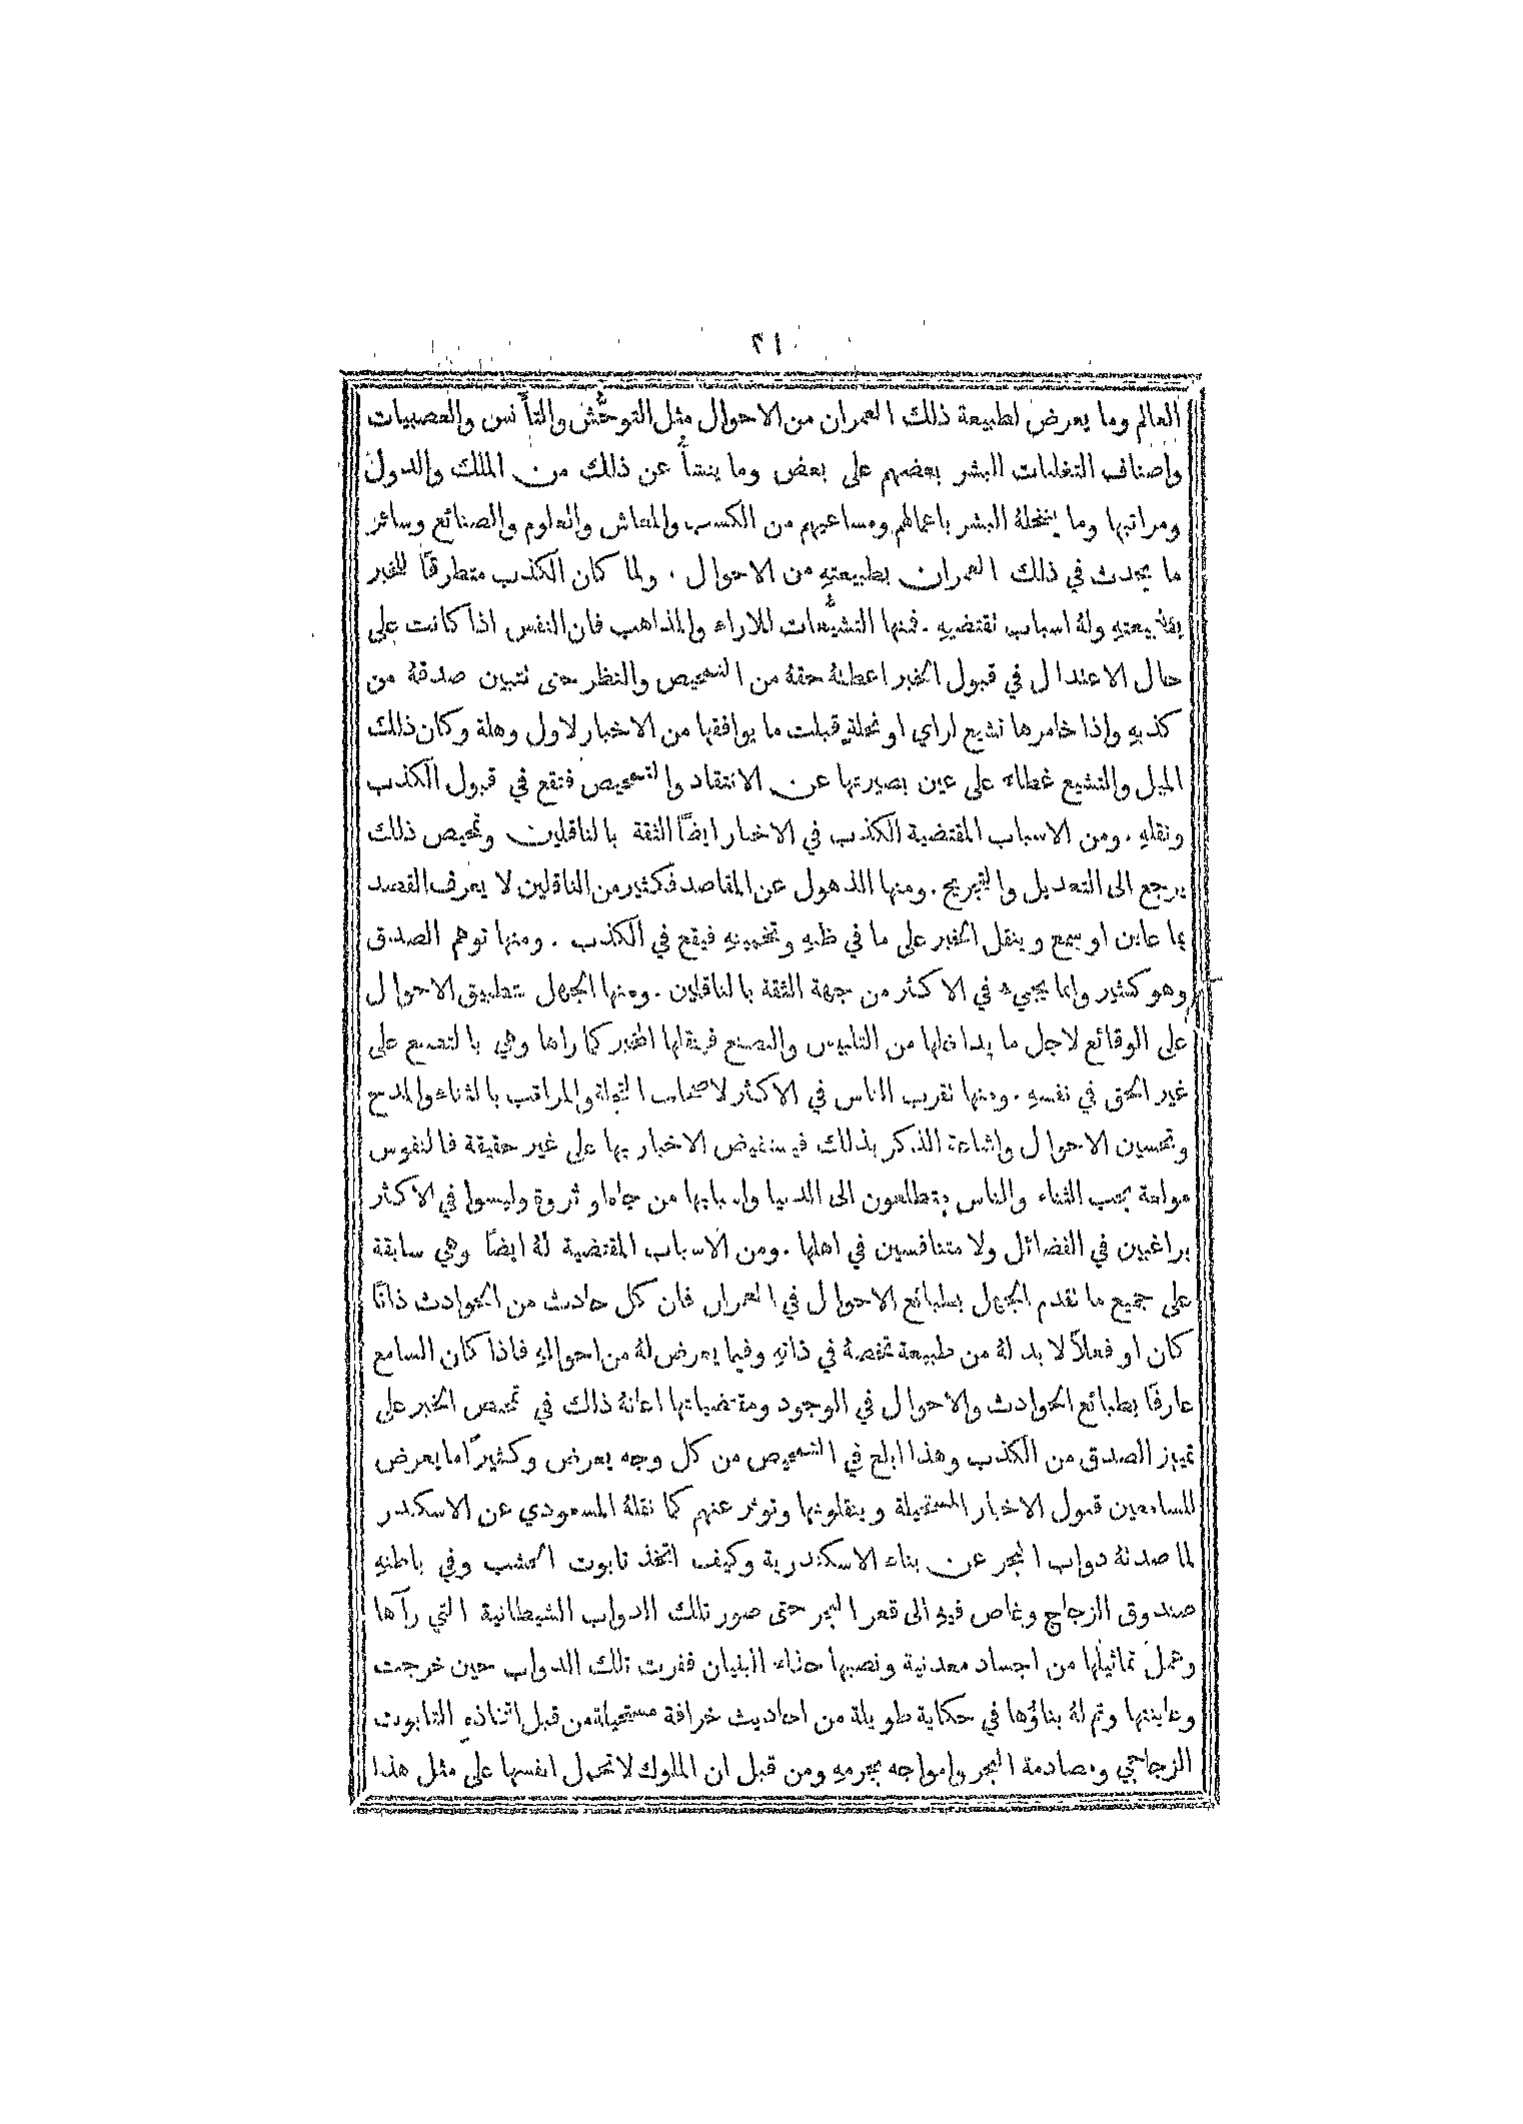 ٣١
العالم وما يعرض لطبيعة ذلك العمران من الاحوال مثل التوحُّش والتأَنس والعصبيات
واصناف التغلبات للبشر بعضهم على بعض وما ينشأُ عن ذلك من الملك والدول
ومراتبها وما ينتحلهُ البشر باعمالهم ومساعيهم من الكسب والمعاش والعلوم والصنائع وسائر
ما يحدث في ذلك العمران بطبيعتهِ من الاحوال . ولما كان الكذب متطرقًا للخبر
بطبيعتهِ ولهُ اسباب تقتضيهِ . فمنها التشيُّعات للاراء والمذاهب فان النفس اذا كانت على
حال الاعتدال في قبول الخبر اعطتهُ حقهُ من التمحيص والنظر حتى تتبين صدقهُ من
كذبهِ واذا خامرها تشيع لراي او نحلةٍ قبلت ما يوافقها من الاخبار لاول وهلة وكان ذلك
الميل والتشيع غطاء على عين بصيرتها عن الانتقاد والتمحيص فتقع في قبول الكذب
ونقلهِ . ومن الاسباب المقتضية للكذب في الاخبار ايضًا الثقة بالناقلين وتمحيص ذلك
يرجع الى التعديل والتجريح . ومنها الذهول عن المقاصد فكثير من الناقلين لا يعرف القصد
بما عاين او سمع وينقل الخبر على ما في ظنهِ وتخمينهِ فيقع في الكذب . ومنها توهم الصدق
وهو كثير وانما يجيء في الاكثر من جهة الثقة بالناقلين . ومنها الجهل بتطبيق الاحوال
على الوقائع لاجل ما يداخلها من التلبيس والتصنع فينقلها المخبر كما راها وهي بالتصنع على
غير الحق في نفسهِ . ومنها تقرب الناس في الاكثر لاصحاب التجلة والمراتب بالثناء والمدح
وتحسين الاحوال واشاعة الذكر بذلك فيستفيض الاخبار بها على غير حقيقة فالنفوس
مولعة بحب الثناء والناس متطلعون الى الدنيا واسبابها من جاه او ثروة وليسوا في الاكثر
براغبين في الفضائل ولا متنافسين في اهلها . ومن الاسباب المقتضية لهُ ايضًا وهي سابقة
على جميع ما تقدم الجهل بطبائع الاحوال في العمران فان كل حادث من الحوادث ذاتًا
كان او فعلاً لا بد لهُ من طبيعة تخصهُ في ذاتهِ وفيما يعرض لهُ من احوالهِ فاذا كان السامع
عارفًا بطبائع الحوادث والاحوال في الوجود ومقتضياتها اعانهُ ذلك في تمحيص الخبر على
تمييز الصدق من الكذب وهذا ابلغ في التمحيص من كل وجه يعرض وكثيرًا ما يعرض
للسامعين قبول الاخبار المستحيلة وينقلونها وتوثر عنهم كما نقلهُ المسعودي عن الاسكندر
لما صدتهُ دواب البحر عن بناء الاسكندرية وكيف اتخذ تابوت الخشب وفي باطنهِ
صندوق الزجاج وغاص فيهِ الى قعر البحر حتى صور تلك الدواب الشيطانية التي رآها
وعمل تماثيلها من اجساد معدنية ونصبها حذاء البنيان ففرت تلك الدواب حين خرجت
وعاينتها وتم لهُ بناؤها في حكاية طويلة من احاديث خرافة مستحيلة من قبل اتخاذهِ التابوت
الزجاجي ومصادمة البحر وامواجه بجرمهِ ومن قبل ان الملوك لا تحمل انفسها على مثل هذا